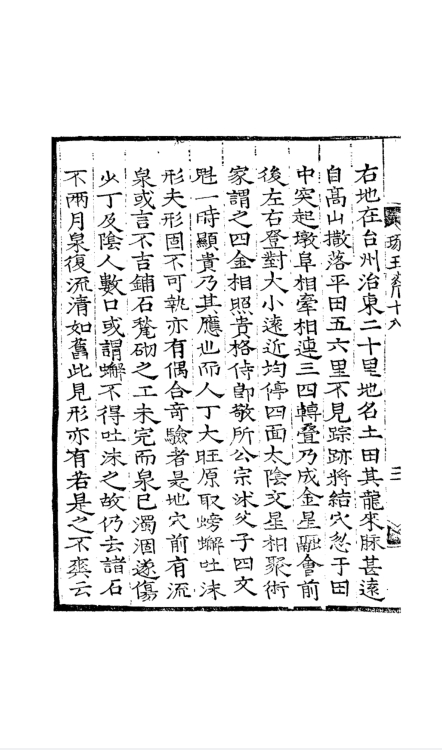 右地在台州治東二十里地名土田其龍來脉甚遠
自高山撒落平田五六里不見踪跡將結穴忽于田
中突起墩阜相牽相連三四轉叠乃成金星融會前
後左右登對大小遠近均停四面太陰文星相聚術
家謂之四金相照貴格侍郎敬所公宗沐父子四文
魁一時顯貴乃其應也而人丁大旺原取螃蠏吐沫
形夫形固不可執亦有偶合奇驗者是地穴前有流
泉或言不吉鋪石甃砌之工未完而泉已濁涸遂傷
少丁及陰人數口或謂蠏不得吐沫之故仍去諸石
不兩月泉復流清如舊此見形亦有若是之不爽云